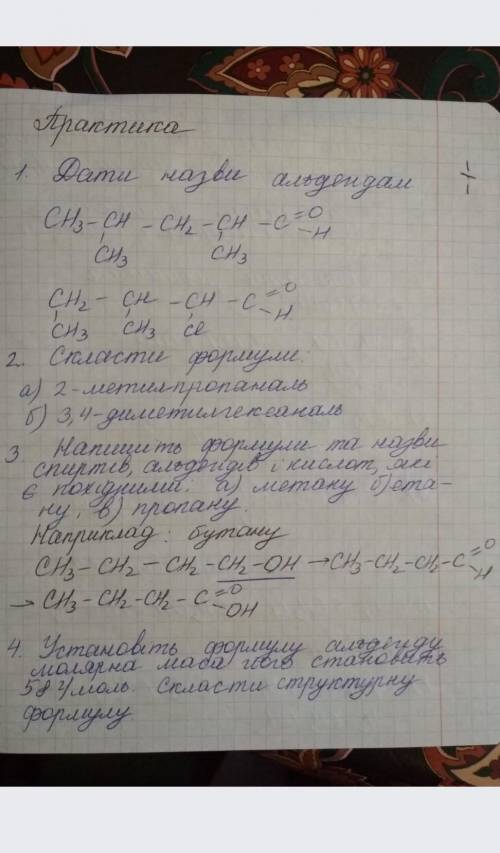 Практика
1. Дати назви альдегідам
CH3–CH–CH2–CH–C=O–H
CH3 CH3
CH2–CH–CH–C=O–H
CH3 CH3 Cl
2. Скласти формули:
а) 2-метилпропаналь
б) 3,4-диметилгексаналь
3 Напишіть формули та назви
спиртів, альдегідів і кислот, які
є похідними: а) метану б) ета-
ну, в) пропану.
Наприклад: бутану
CH3–CH2–CH2–CH2–OH → CH3–CH2–CH2–C=O–H
→ CH3–CH2–CH2–C=O–OH
4. Установіть формулу альдегіду
молярна маса його становить
58 г/моль. Скласти структурну
формулу